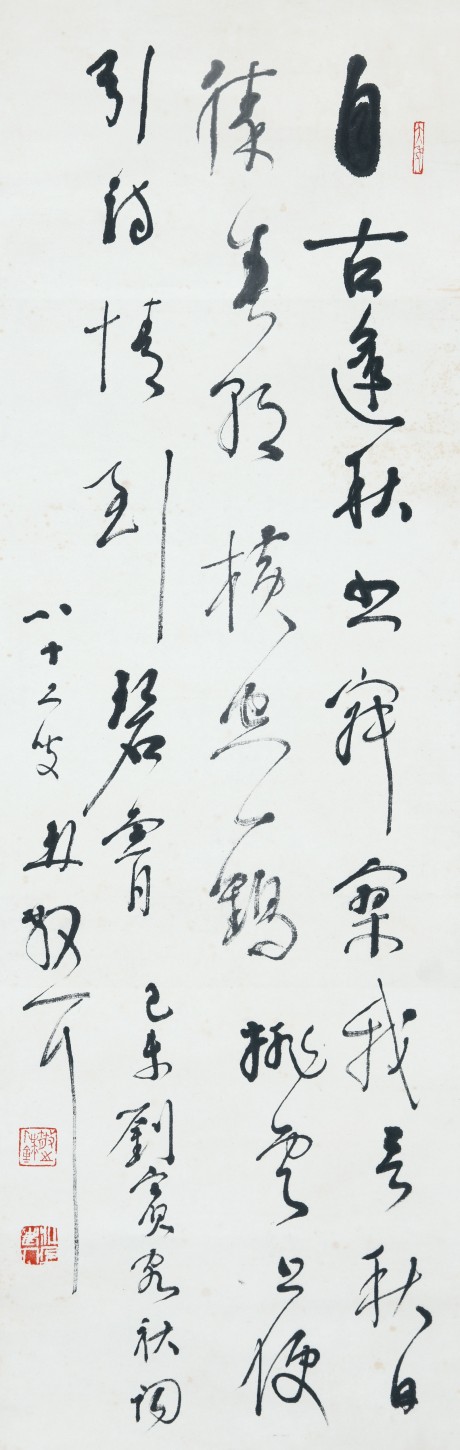 自古逢秋悲寂寥我言秋日
勝春朝橫空一鶴排雲上便
引詩情到碧霄 己未劉賓客秋詞
八十二叟林散耳